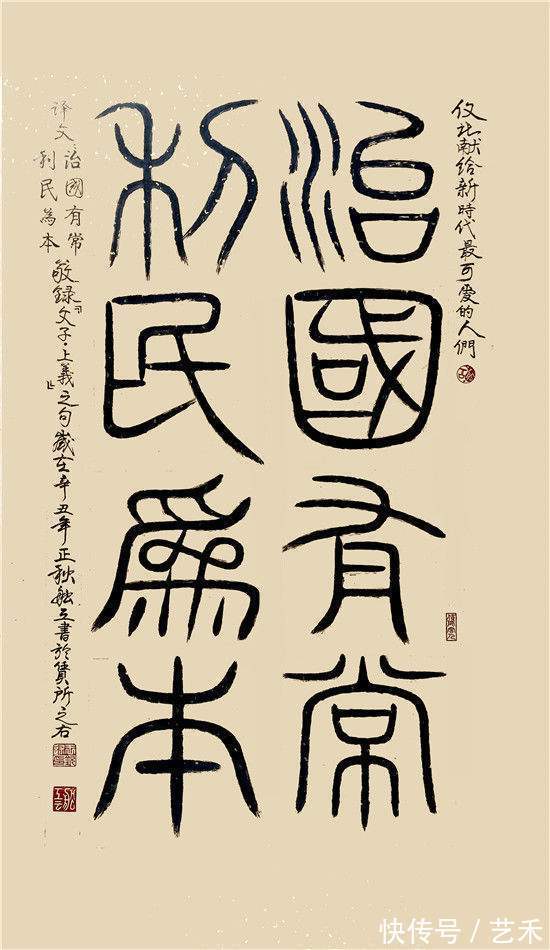 仅此献给新時代最可愛的人們
治國有常
利民爲本
译文:治國有常
利民為本
敬録『文子·上義』之句歲在辛丑年正秋書於所之右
快传号/艺禾